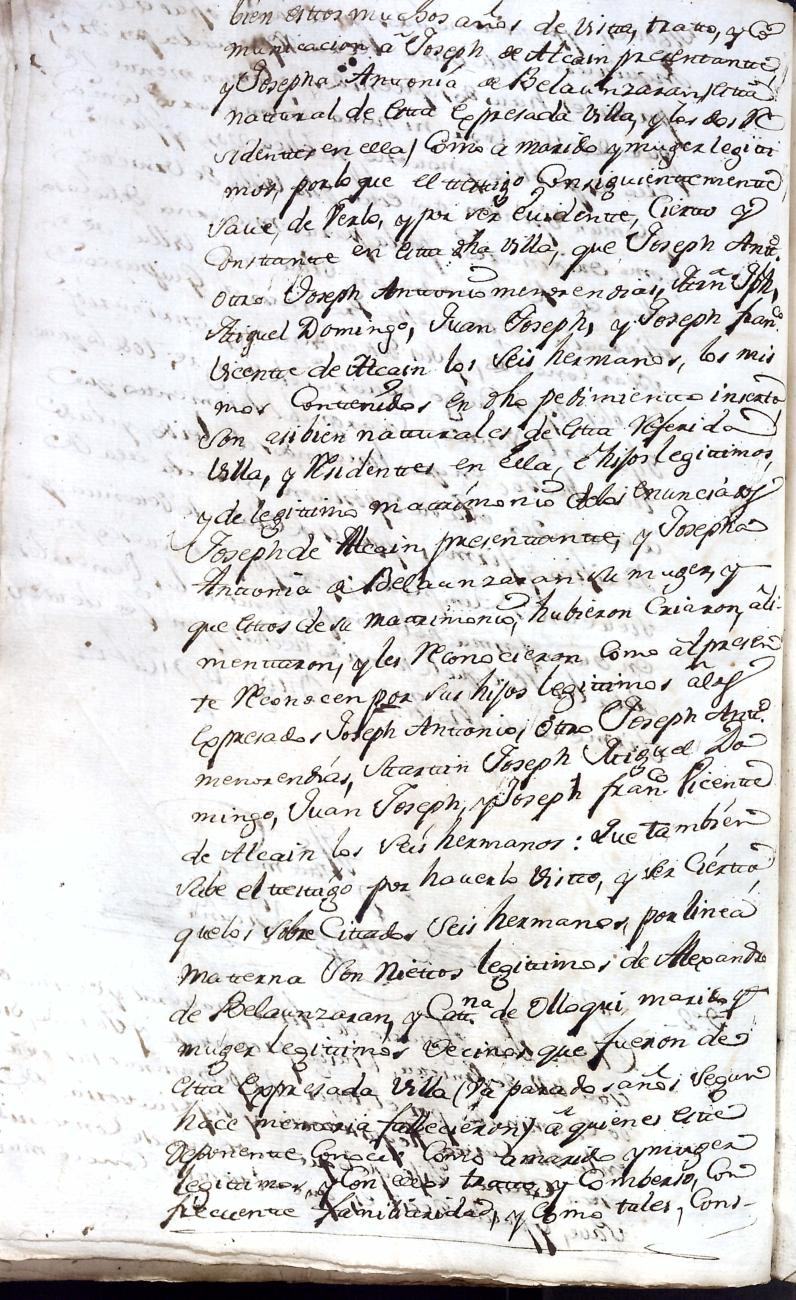 bien esttos muchos años de vistta, tratto, y Co
municacion â Joseph de Alcain presentantte,
y Josepha Antonia de Belaunzaran, (estta
natural de estta Expresada Villa, y los dos Re
sidenttes en ella) Como â marido y muger legiti
mos, por lo que el testigo Consiguientemente
save, de verlo, y por ser Evidente, Ciertto y
Constantte en estta dha Villa, que Joseph Antto.
ottro Joseph Antonio menor en dias, Martn Jph,
Miguel Domingo, Juan Joseph, y Joseph franco.
Vicentte de Alcain los seis hermanos, los mis
mos Contenidos en dho pedimientto insertto
son asi bien natturales de estta Referida
Villa, y Residenttes en ella, è hijos legittimos,
y de legittimo mattrimonio de los enunciados
Joseph de Alcain presentantte, y Josepha
Antonia de Belaunzaran su muger, y
que esttos de su mattrimonio, hubieron Criaron, ali-
menttaron, y les Reconocieron Como al presen
te Reconocen por sus hijos legittimos â los
Expresados Joseph Antonio, ottro Joseph Antto.
menor en dias, Martin Joseph Miguel Do
mingo, Juan Joseph, y Joseph franco. Vicentte
de Alcain los seis hermanos: Que tambien
sabe el testigo por haverlo visto, y ser Ciertto
que los sobre Cittados seis hermanos, por linea
matterna son Niettos legittimos de Alexandro
de Belaunzaran, y Cattna de Olloqui, marido y
muger legittimos Vecinos que fueron de
estta Expresada Villa (Yâ pasados años segun
hace memoria fallecieron) â quienes estte
deponentte, Conocio Como â marido y muger
legittimos, y Con ellos tratto, y Comberso, Con
frecuentte familiaridad, y Como tales, Cons-